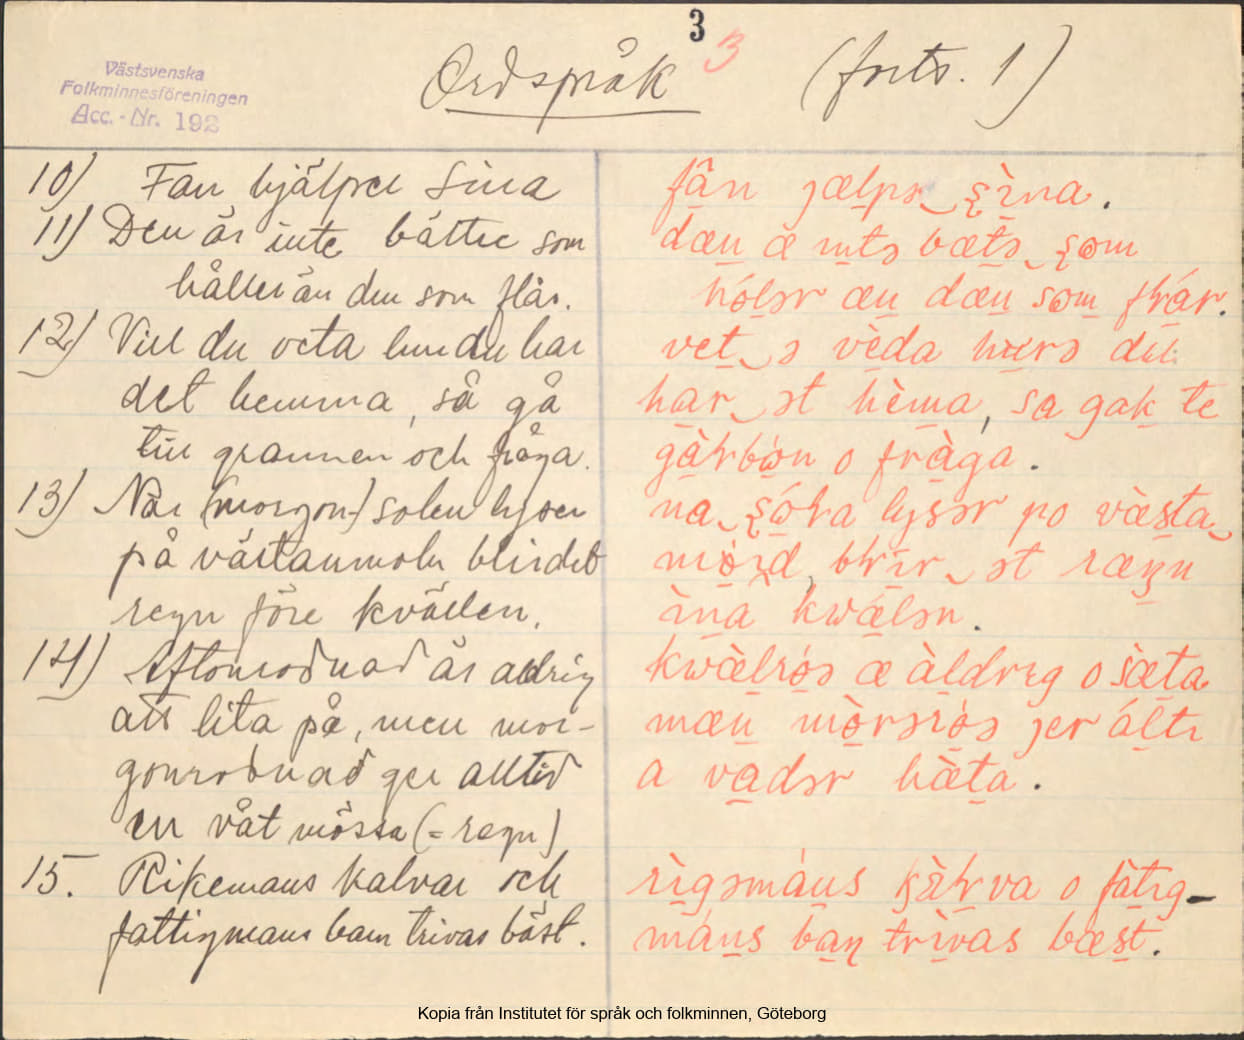 3
3
Västsvenska
Folkminnesföreningen
Acc. - Nr. 192
Ordspråk (forts. 1)
10) Fan hjälper sina
11) Den är inte bättre som
håller än den som flår.
12) Vill du veta hur du har
det hemma, så gå
till grannen och fråga.
13) När (morgon-) solen lyser
på västanmoln blir det
regn före kvällen.
14) Aftonrodnad är aldrig
att lita på, men mor-
gonrodnad ger alltid
en våt mössa (= regn)
15. Rikemans kalvar och
fattigmans barn trivas bäst.
fân jælpɘr sìna.
dæn æ ntɘ bætɘ som
hólɘr æn dæn som flár.
vet ɘ vèda hurɘ du
har ɘt hèma, sa gak te
gàrbòn o fràga.
na sóla lysɘr po vàsta
móɪd, blir ɘt ræŋn
ìna kwælɘn.
kwælrós æ àldrɪg o sæta
mæn mòrɘròs jer áltɪ
a vadɘr hæta.
rìgsmáns kàlva o fàtɪg-
máns baɳ trìvas bæst.
Kopia från Institutet för språk och folkminnen, Göteborg